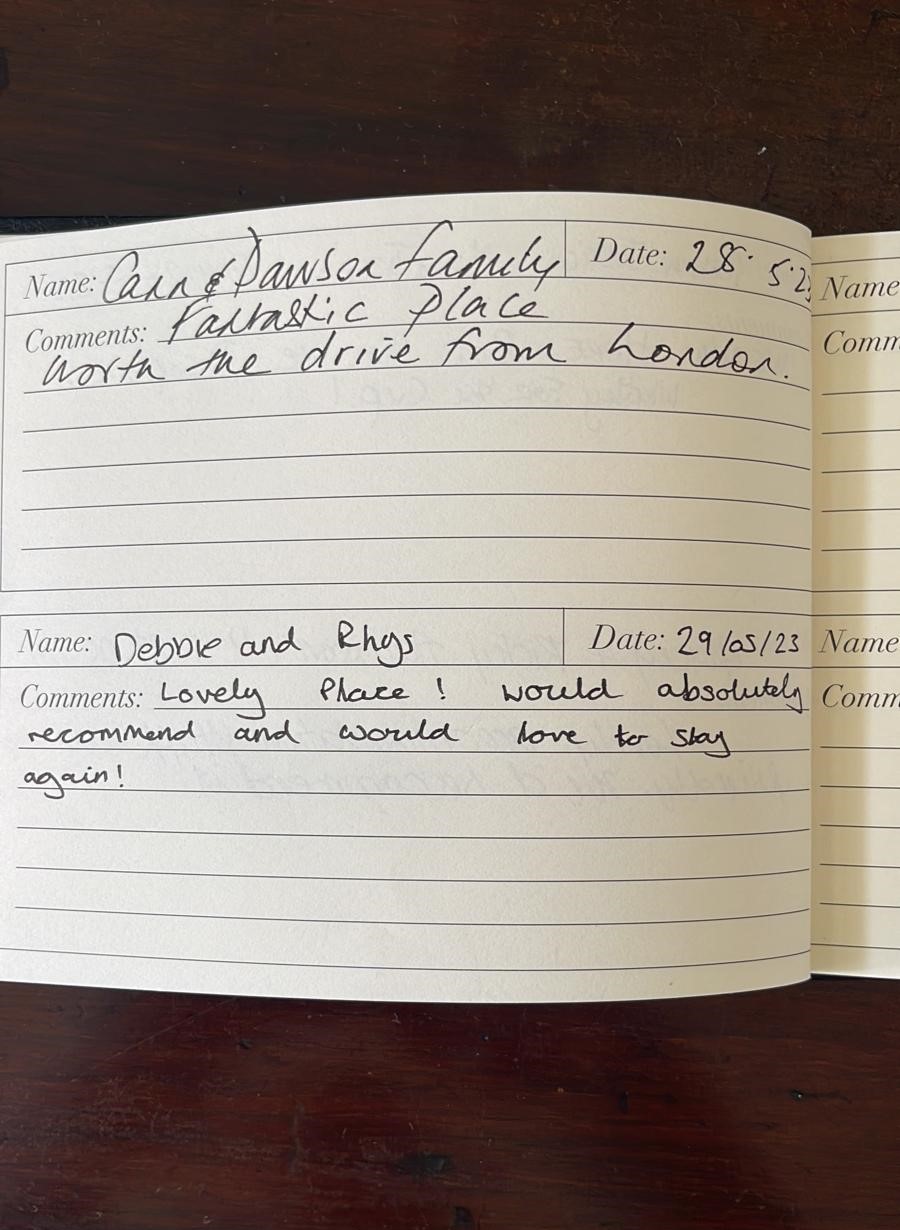 Name: Cann & Dawson family Date: 28. 5.23
Comments: Fantastic Place
Worth the drive from London.
Name: Debbie and Rhys Date: 29/05/23
Comments: Lovely Place! would absolutely
recommend and would love to stay
again!
Name
Comm
Name
Comm